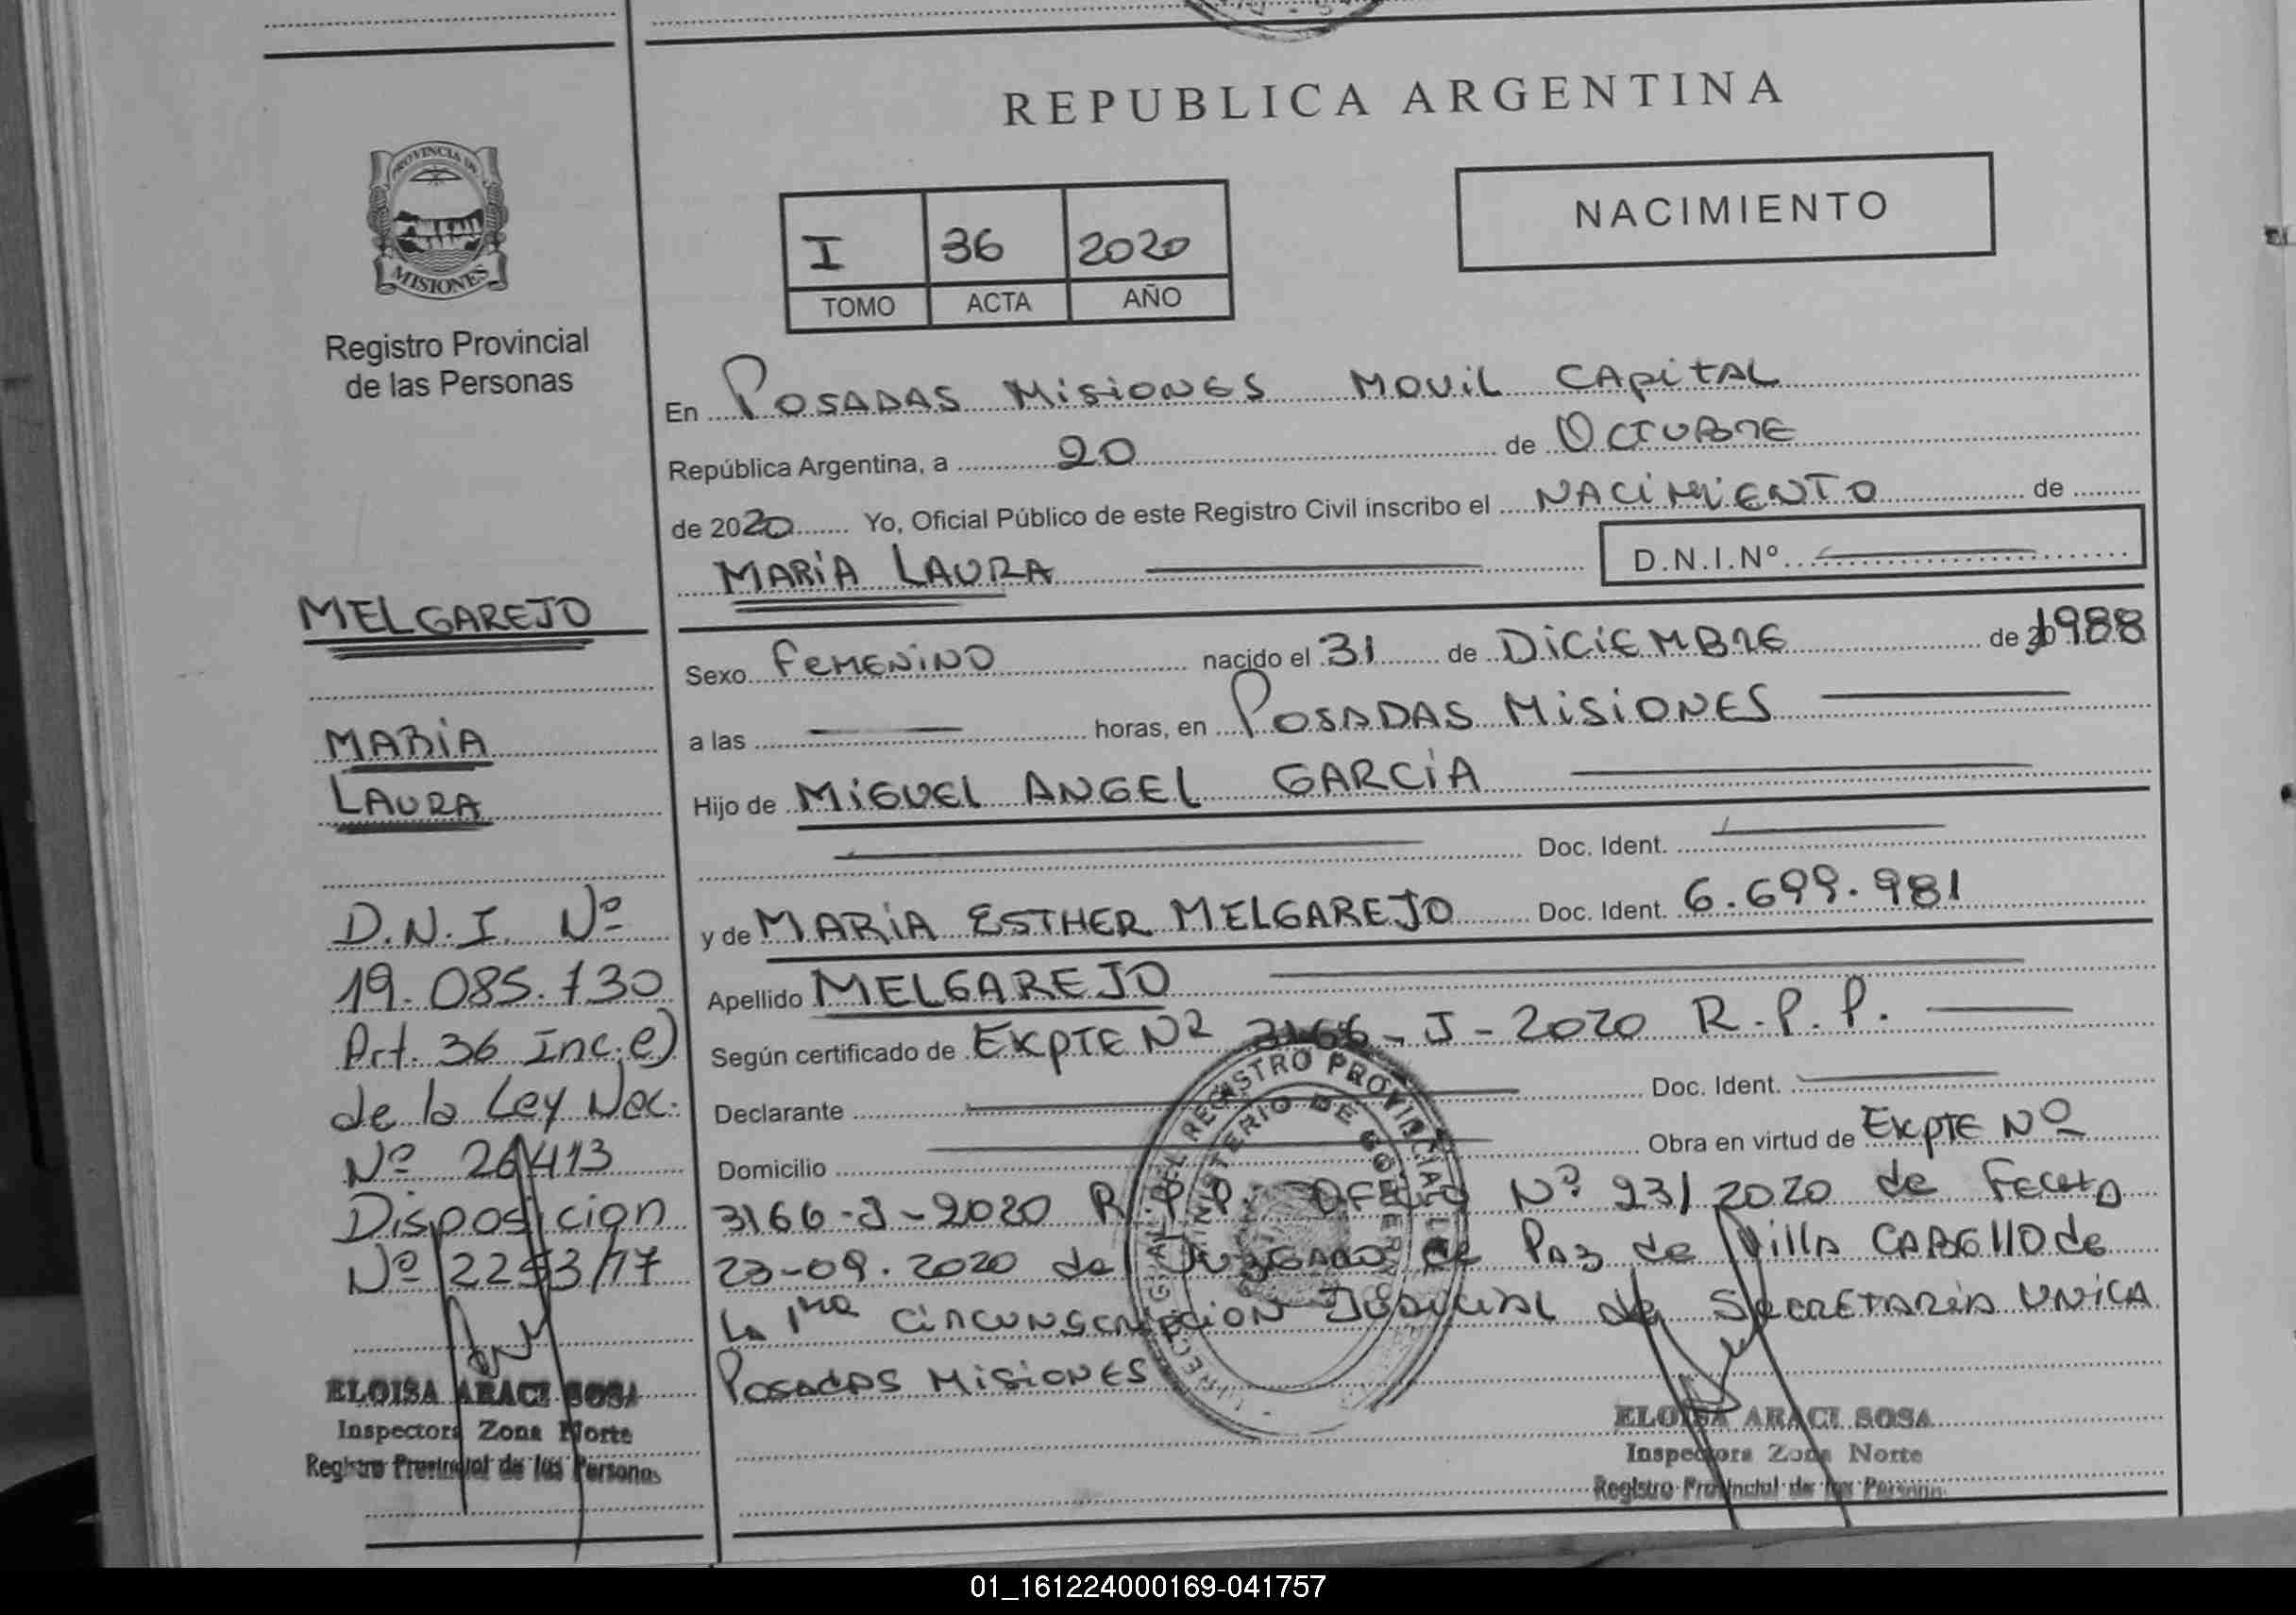 REPUBLICA ARGENTINA
PROVINCIA DE
MISIONES
Registro Provincial
de las Personas
NACIMIENTO
I 36 2020
TOMO ACTA AÑO
En POSADAS MISIONES MOVIL CAPITAL
República Argentina, a 20 de OCTUBRE
de 2020 Yo, Oficial Público de este Registro Civil inscribo el NACIMIENTO de
MARIA LAURA D.N.I.Nº
Sexo FEMENINO nacido el 31 de DICIEMBRE de 1988
a las horas, en POSADAS MISIONES
Hijo de MIGUEL ANGEL GARCIA
Doc. Ident.
y de MARIA ESTHER MELGAREJO Doc. Ident. 6.699.981
Apellido MELGAREJO
Según certificado de EXPTE Nº 3166-J-2020 R.P.P.
Declarante Doc. Ident.
Domicilio Obra en virtud de EXPTE Nº
3166-J-2020 R.P.P. OFICIO Nº 231/2020 de FECHA
23-09.2020 del JUZGADO de PAZ de Villa CABELLO de
LA 1ra CIRCUNSCRIPCION JUDICIAL de SECRETARIA UNICA
POSADAS MISIONES
ELOISA ARACI SOSA
Inspectora Zona Norte
Registro Provincial de las Personas
MELGAREJO
MARIA
LAURA
D.N.I. Nº
19.085.130
Art. 36 Inc.e)
de la Ley Nac.
Nº 26413
Disposicion
Nº 2253/17
ELOISA ARACI SOSA
Inspectora Zona Norte
Registro Provincial de las Personas
01_161224000169-041757